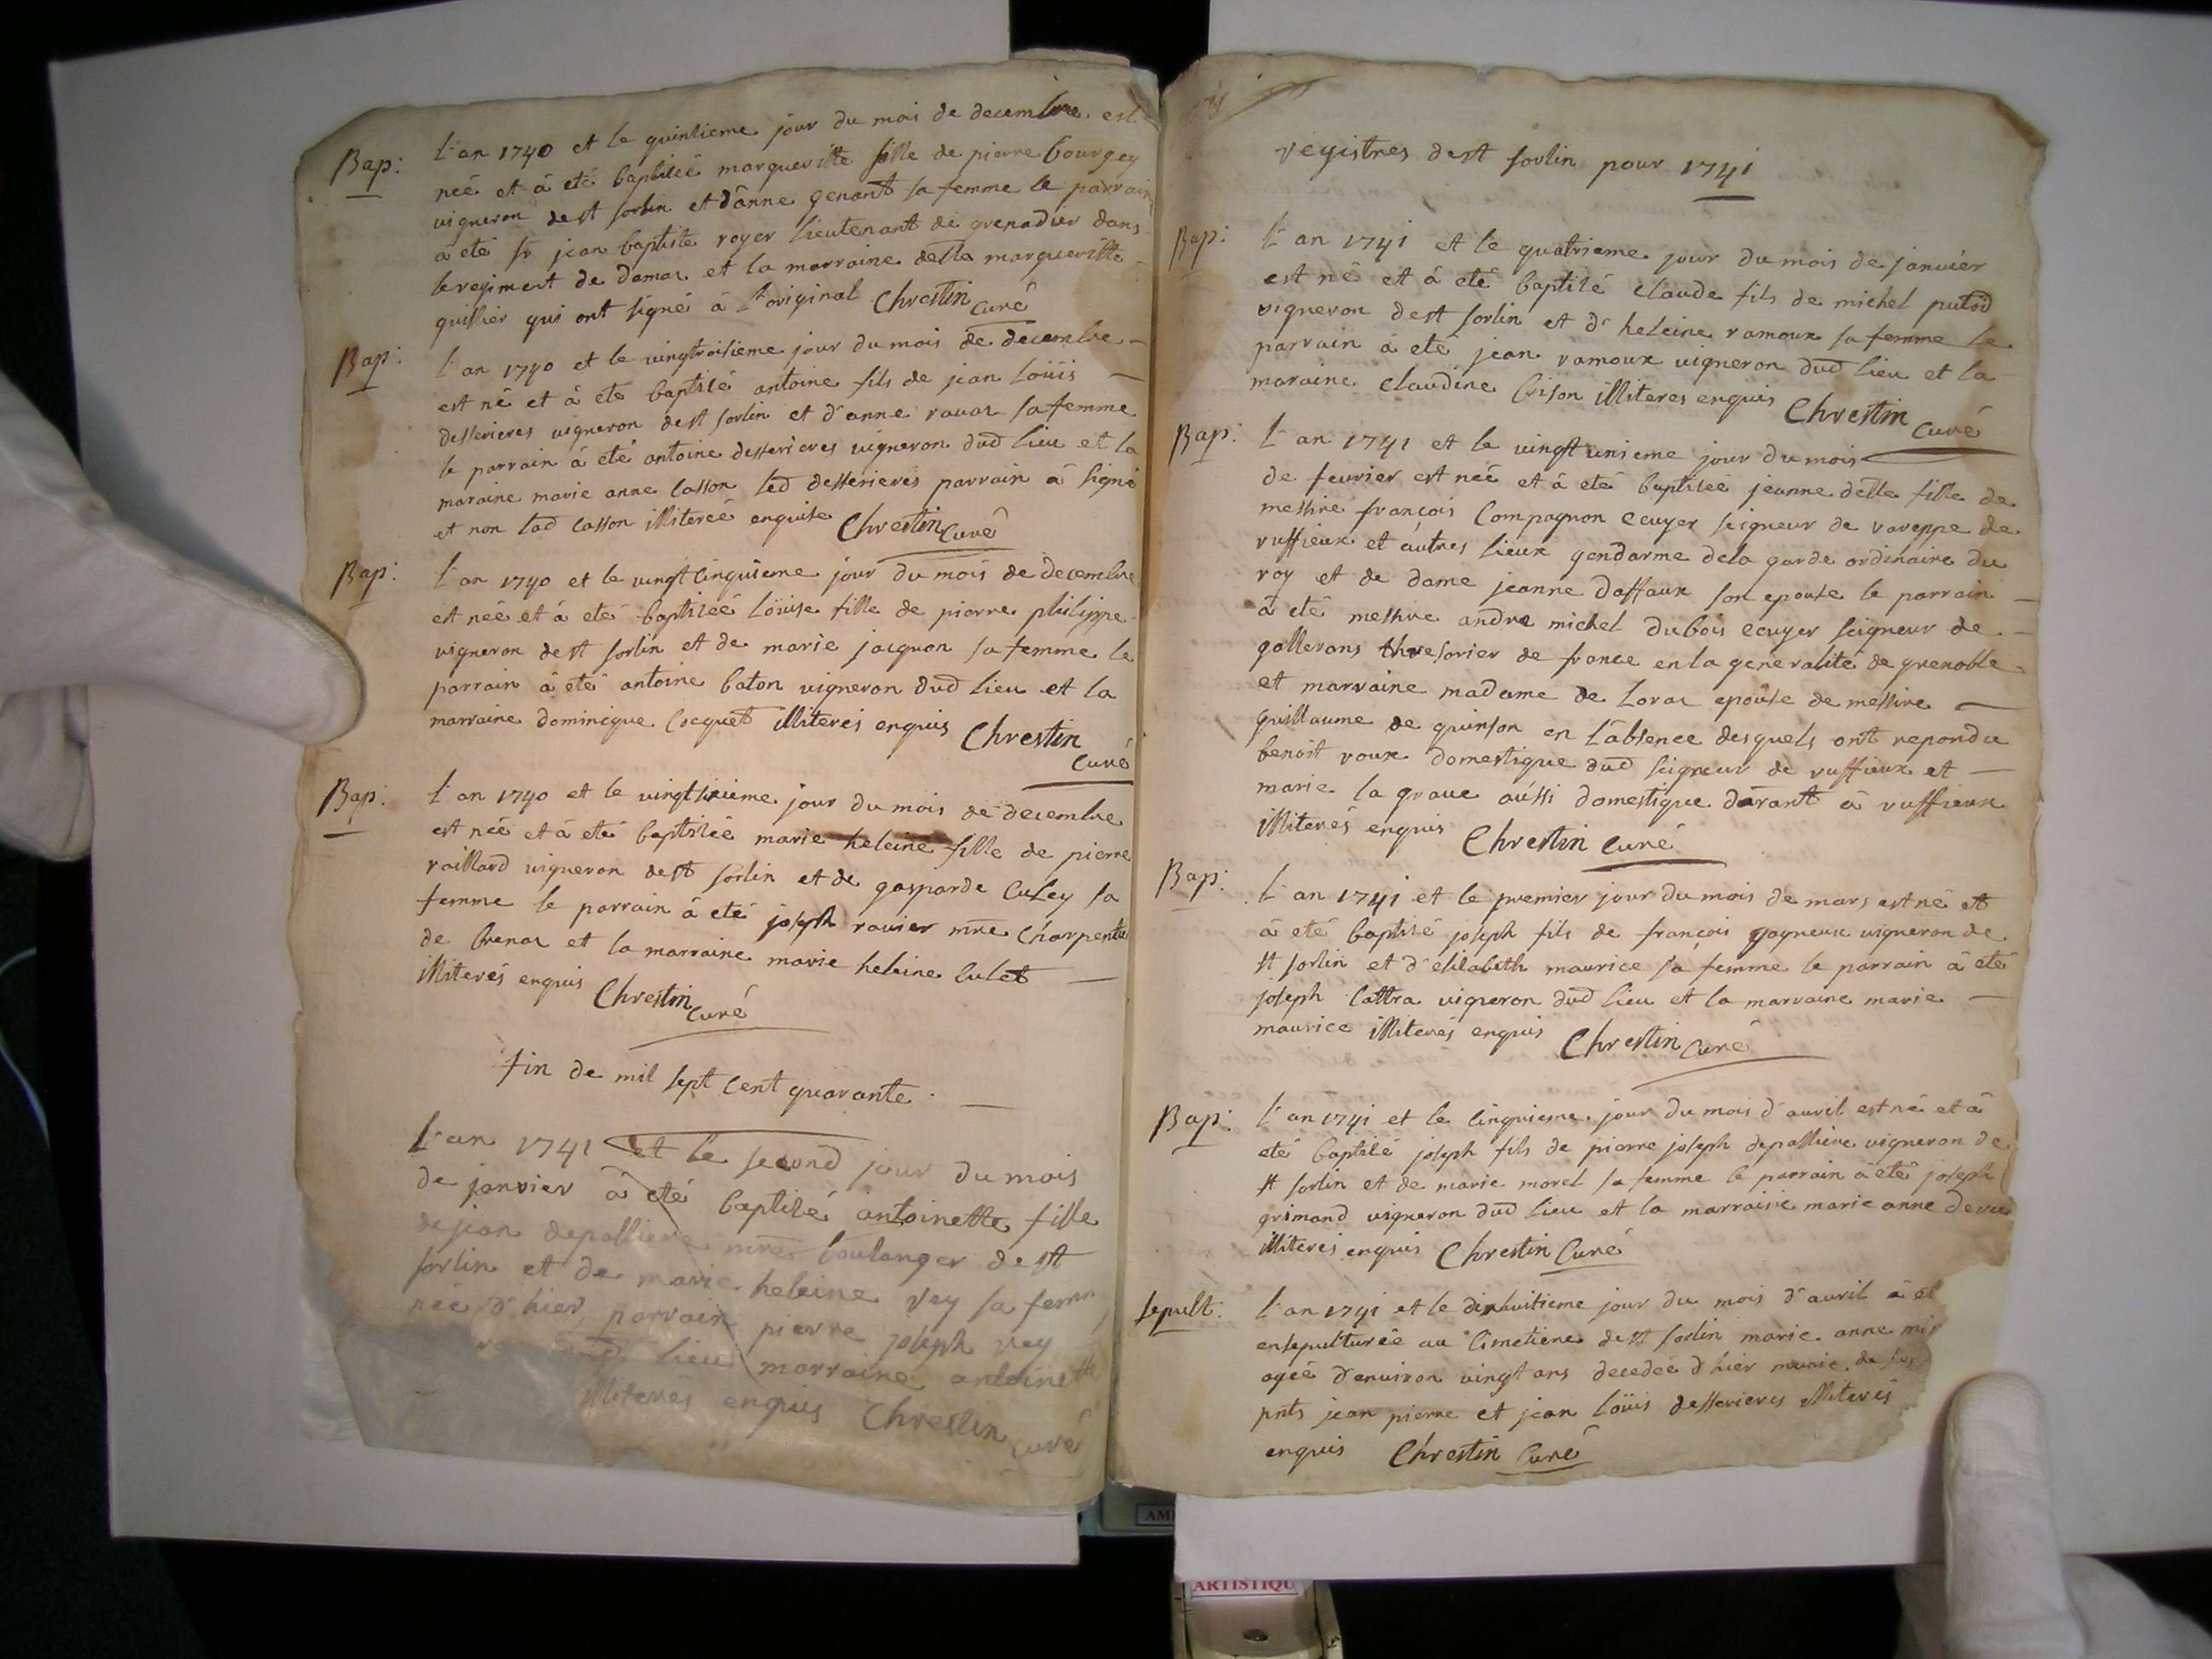 Bap: l'an 1740 et le quinsieme jour du mois de decembre est
neé et à eté baptiseé margueritte fille de pierre bourgey
vigneron de st sorlin et d'anne genant sa femme le parrain
à eté sr jean baptiste royer lieutenant de grenadier dans
le regiment de damas et la marraine delle margueritte
quillier qui ont signé à l'original Chrestin curé
Bap: l'an 1740 et le vingtroisieme jour du mois de decembre
est né et à eté baptisé antoine fils de jean loüis
desserieres vigneron de st sorlin et d'anne ravat sa femme
le parrain à eté antoine desserrieres vigneron dud lieu et la
maraine marie anne casson led desserieres parrain à signé
et non lad casson illitereé enquise Chrestin curé
Bap: l'an 1740 et le vingt cinquieme jour du mois de decembre
est neé et à eté baptiseé loüise fille de pierre philippe
vigneron de st sorlin et de marie jacquon sa femme le
parrain à eté antoine baton vigneron dud lieu et la
marraine dominique cocquet illiterés enquis Chrestin
curé
Bap: l'an 1740 et le vingt sixieme jour du mois de decembre
est neé et à eté baptiseé marie heleine fille de pierre
raillard vigneron de st sorlin et de gasparde culey sa
femme le parrain à eté joseph ravier mre charpentie
de brenas et la marraine marie heleine culet
illiterés enquis Chrestin curé
fin de mil sept cent quarante
l'an 1741 et le second jour du mois
de janvier à eté baptisé antoinette fille
de jean depalliere mre boulanger de st
sorlin et de marie heleine vey sa femm
neé d'hier, parrain pierre joseph vey
dud lieu marraine antoinette
illiterés enquis Chrestin curé
registres de st sorlin pour 1741
Bap: l'an 1741 et le quatrieme jour du mois de janvier
est né et à eté baptisé claude fils de michel putod
vigneron de st sorlin et d' heleine ramoux sa femme le
parrain à eté jean ramoux vigneron dud lieu et la
maraine claudine brison illiteres enquis Chrestin
curé
Bap: l'an 1741 et le vingt unieme jour du mois
de fevrier est neé et à eté baptiseé jeanne delle fille de
messire françois compagnon ecuyer seigneur de vareppe de
ruffieux et autres lieux gendarme de la garde ordinaire du
roy et de dame jeanne dassaux son epouse le parrain
à eté messire andre michel dubois ecuyer seigneur de
gallerans thresorier de france en la generalité de grenoble
et marraine madame de loras epouse de messire
guillaume de quinson en l'absence desquels ont repondu
benoit roux domestique dud seigneur de ruffieux et
marie la grave aussi domestique darant à ruffieux
illiterés enquis Chrestin curé
Bap: l'an 1741 et le premier jour du mois de mars est né et
à eté baptisé joseph fils de françois gagneux vigneron de
st sorlin et d'elisabeth maurice sa femme le parrain à eté
joseph cattra vigneron dud lieu et la marraine marie
maurice illiterés enquis Chrestin curé
Bap: l'an 1741 et le cinquieme jour du mois d'avril est né et à
eté baptisé joseph fils de pierre joseph depalliere vigneron de
st sorlin et de marie morel sa femme le parrain à eté joseph
grimand vigneron dud lieu et la marraine marie anne
illiterés enquis Chrestin curé
sepult: l'an 1741 et le dixhuitieme jour du mois d'avril à et
ensepultureé au cimetiere de st sorlin marie anne
ageé d'environ vingt ans decedeé d'hier munie de ses
pnts jean pierre et jean loüis desserieres illiterés
enquis Chrestin curé
ARTISTIQU